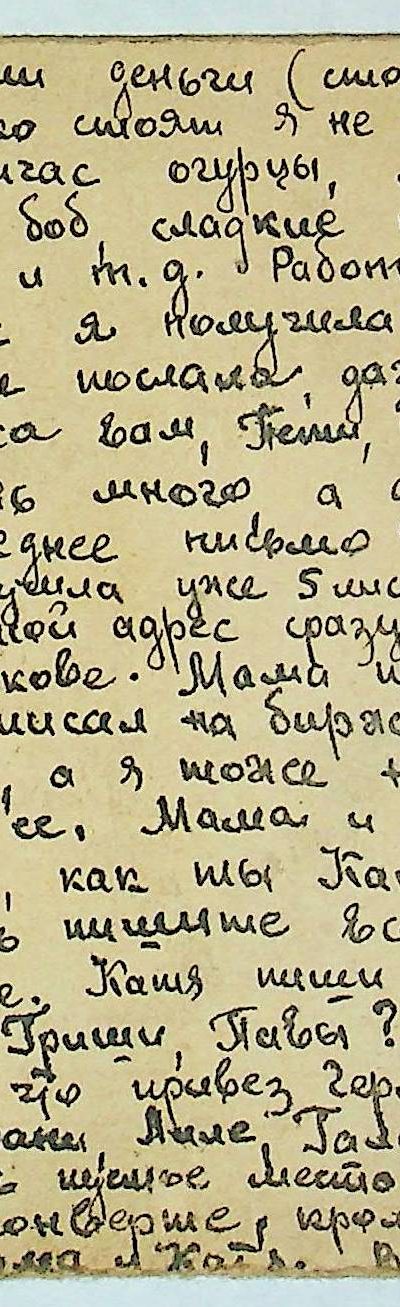 ши деньги (сто
ко стоят я не
йчас огурцы,
боб, сладкие
и т.д. Работ
я получила
е послала, да
са вам, Пети,
ть много, а
еднее письмо
учила уже 5 пис
мой адрес сразу
кове. Мама и
писал на бирж
, а я тоже н
её. Мама и
, как ты Ка
ь пишите вс
е. Катя пиши
Гриши, Павы?
что привез Гер
ани, Лиле, Гал
ь пустое место
конверте, кром
ма и Катя.